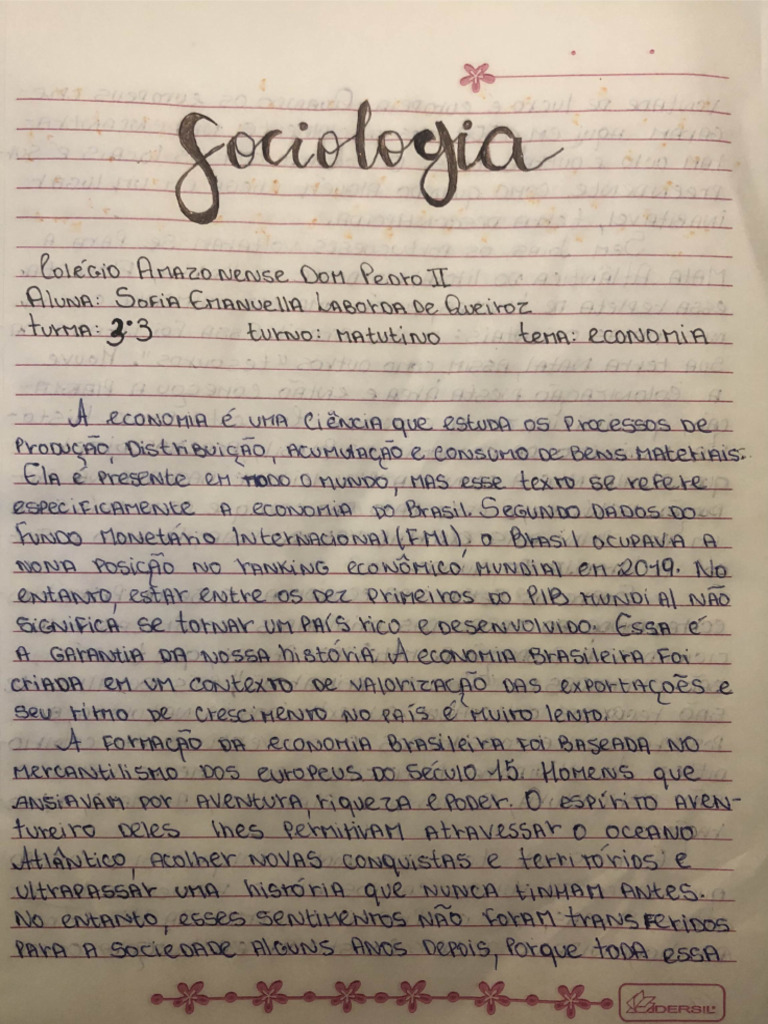 Sociologia
Colégio Amazonense Dom Pedro II
Aluna: Sofia Emanuella Laborda de Queiroz
turma: 3º3 turno: matutino tema: economia
A economia é uma ciência que estuda os processos de
produção, distribuição, acumulação e consumo de bens materiais.
Ela é presente em todo o mundo, mas esse texto se refere
especificamente a economia do Brasil. Segundo dados do
Fundo Monetário Internacional (FMI), o Brasil ocupava a
nona posição no ranking econômico mundial em 2019. No
entanto, estar entre os dez primeiros do PIB mundial não
significa se tornar um país rico e desenvolvido. Essa é
a garantia da nossa história. A economia brasileira foi
criada em um contexto de valorização das exportações e
seu ritmo de crescimento no país é muito lento.
A formação da economia brasileira foi baseada no
mercantilismo dos europeus do século 15. Homens que
ansiavam por aventura, riqueza e poder. O espírito aven-
tureiro deles lhes permitivam atravessar o oceano
Atlântico, acolher novas conquistas e territórios e
ultrapassar uma história que nunca tinham antes.
No entanto, esses sentimentos não foram transferidos
para a sociedade alguns anos depois, porque toda essa
DERSIL